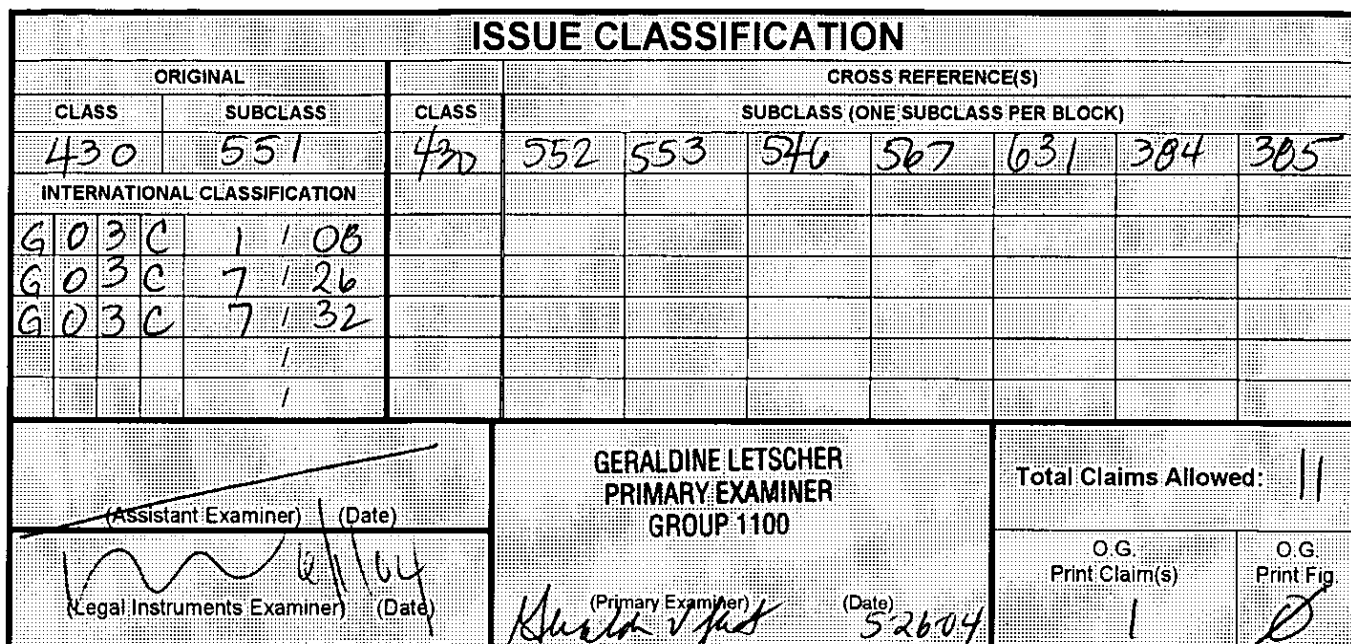 ISSUE CLASSIFICATION
ORIGINAL CROSS REFERENCE(S)
CLASS SUBCLASS CLASS SUBCLASS (ONE SUBCLASS PER BLOCK)
430 551 430 552 553 546 567 631 384 385
INTERNATIONAL CLASSIFICATION
G 0 3 C 1 / 08
G 0 3 C 7 / 26
G 0 3 C 7 / 32
/
/
(Assistant Examiner) (Date)
(Legal Instruments Examiner) (Date)
GERALDINE LETSCHER
PRIMARY EXAMINER
GROUP 1100
(Primary Examiner) (Date)
5-26-04
Total Claims Allowed: 11
O.G.
Print Claim(s)
1
O.G.
Print Fig.